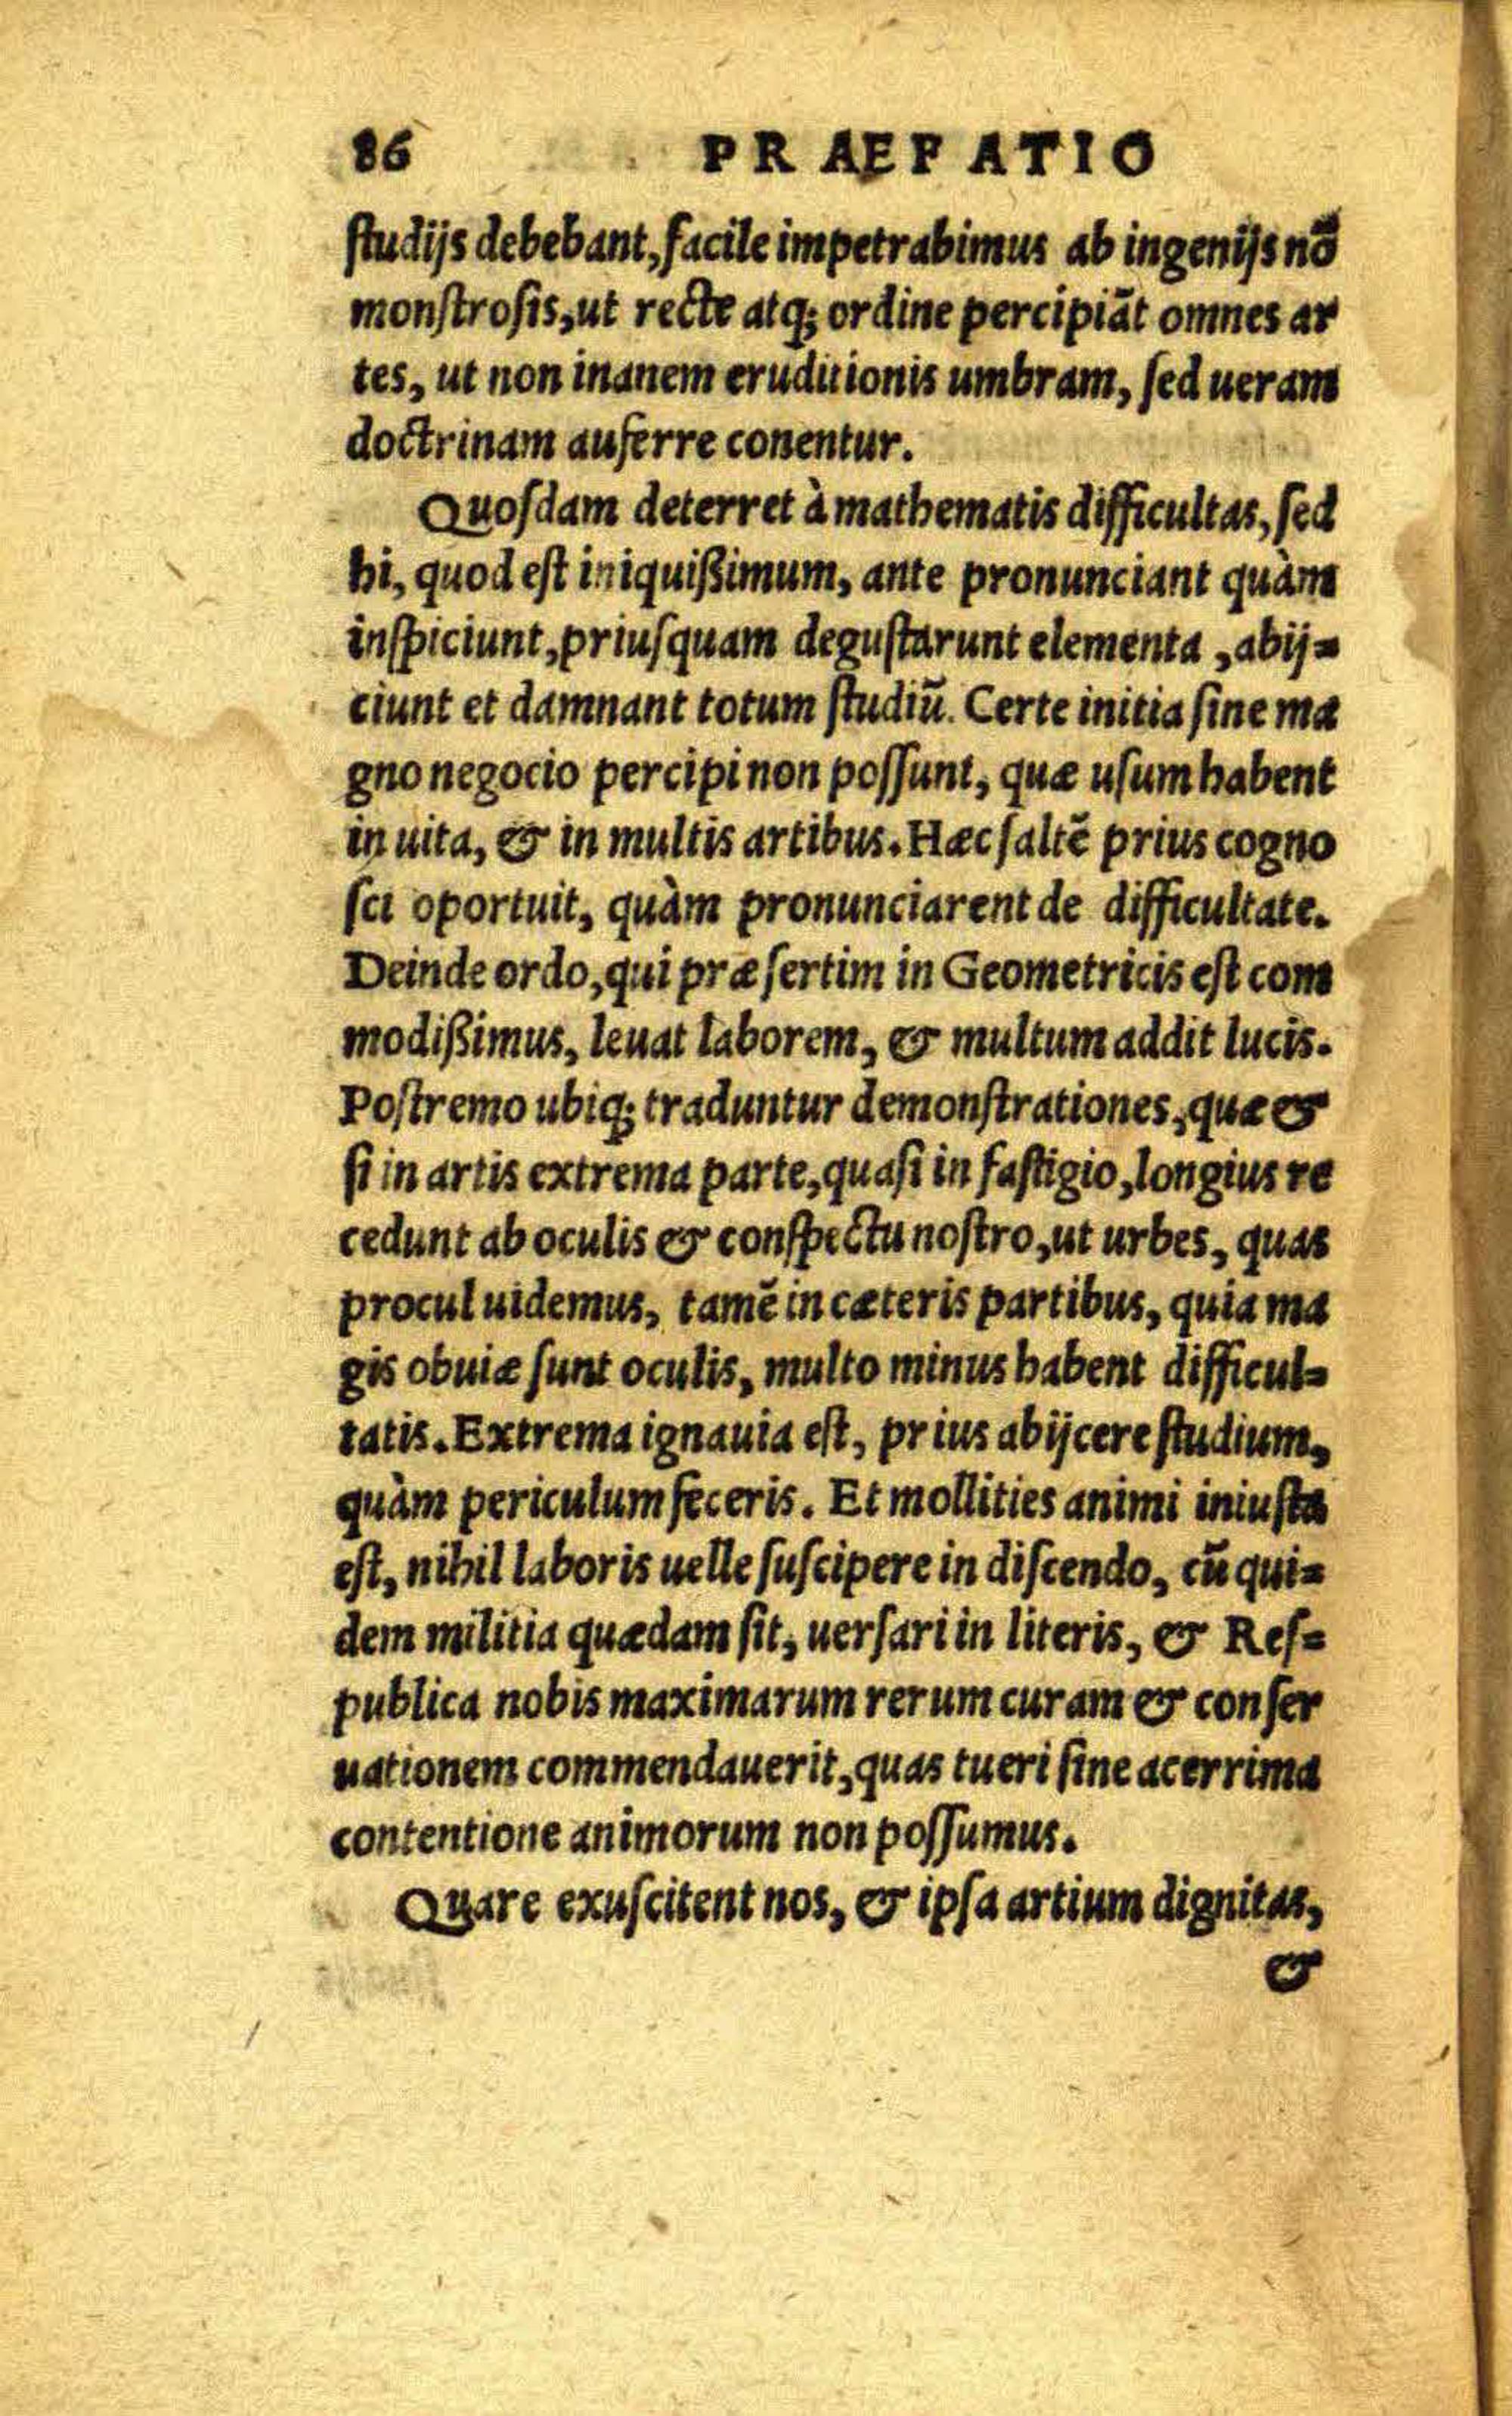 86 PRAEFATIO
studijs debebant, facile impetrabimus ab ingenijs nō
monstrosis, ut recte atq; ordine percipiāt omnes ar
tes, ut non inanem eruditionis umbram, sed ueram
doctrinam auferre conentur.
Quosdam deterret à mathematis difficultas, sed
hi, quod est iniquißimum, ante pronunciant quàm
inspiciunt, priusquam degustarunt elementa, abij=
ciunt et damnant totum studiū. Certe initia sine ma
gno negocio percipi non possunt, quæ usum habent
in uita, & in multis artibus. Hæc saltē prius cogno
sci oportuit, quàm pronunciarent de difficultate.
Deinde ordo, qui præsertim in Geometricis est com
modißimus, leuat laborem, & multum addit lucis.
Postremo ubiq; traduntur demonstrationes, quæ &
si in artis extrema parte, quasi in fastigio, longius re
cedunt ab oculis & conspectu nostro, ut urbes, quas
procul uidemus, tamē in cæteris partibus, quia ma
gis obuiæ sunt oculis, multo minus habent difficul=
tatis. Extrema ignauia est, prius abijcere studium,
quàm periculum feceris. Et mollities animi iniusta
est, nihil laboris uelle suscipere in discendo, cū qui=
dem militia quædam sit, uersari in literis, & Res=
publica nobis maximarum rerum curam & conser
uationem commendauerit, quas tueri sine acerrima
contentione animorum non possumus.
Quare exuscitent nos, & ipsa artium dignitas,
&